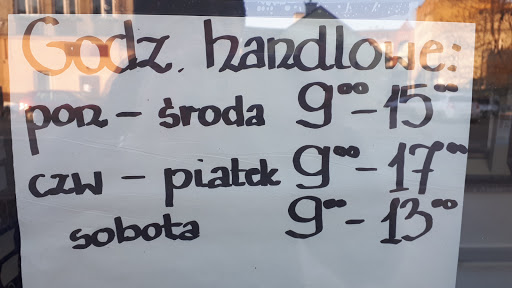 Godz. handlowe:
pon - środa 9⁰⁰ - 15⁰⁰
czw - piatek 9⁰⁰ - 17⁰⁰
sobota 9⁰⁰ - 13⁰⁰